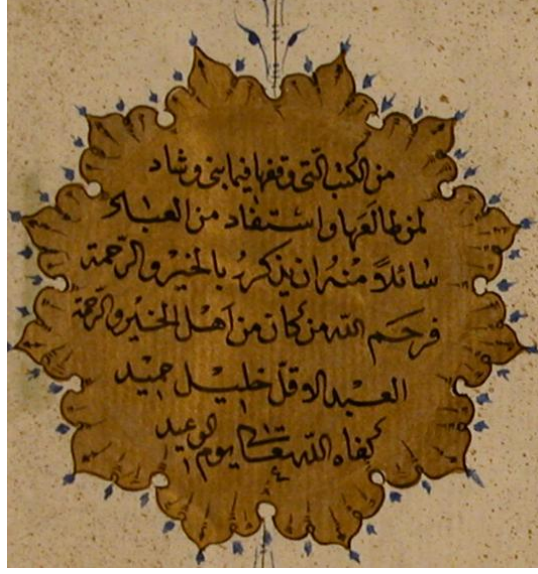 من الكتب التي وقفها فيما بنى وشاد
لمن طالعها واستفاد من العباد
سائلاً منه ان يذكره بالخير والرحمة
فرحم الله من كان من اهل الخير والرحمة
العبد الاقل خليل حميد
كفاه الله تعالى يوم الوعيد